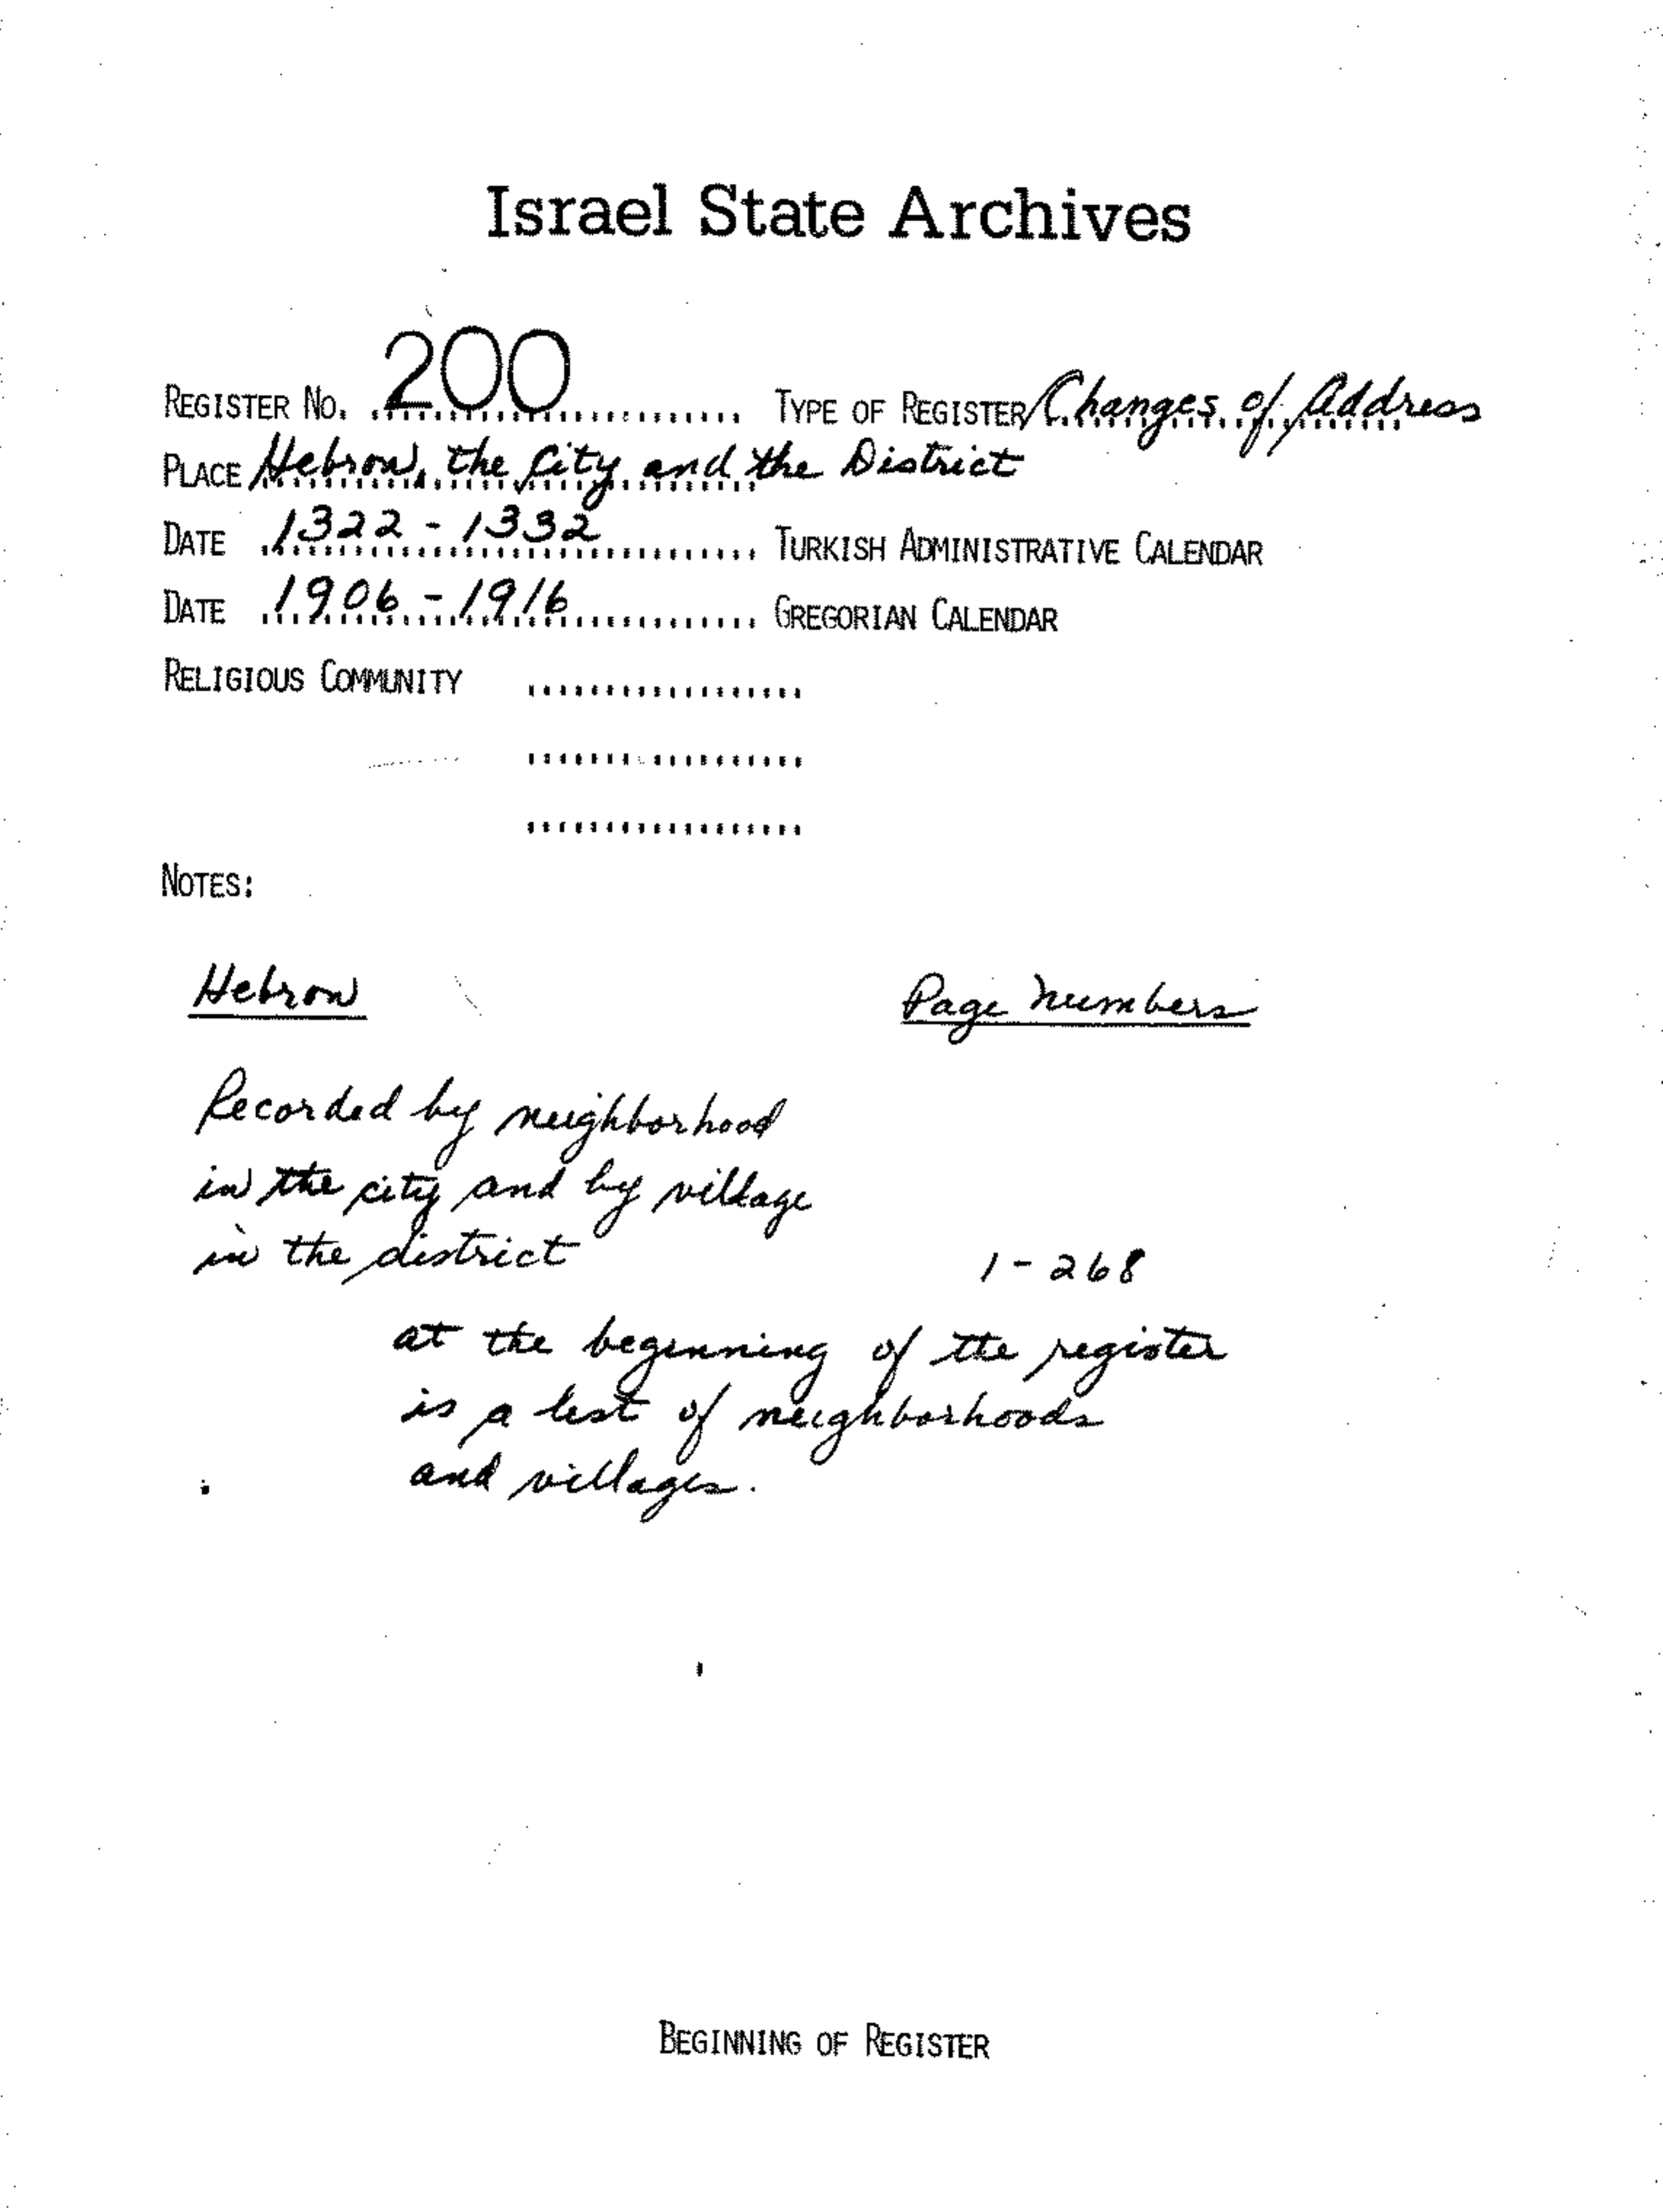 Israel State Archives
REGISTER NO. 200 TYPE OF REGISTER Changes of Address
PLACE Hebron, the City and the District
DATE 1322 - 1332 TURKISH ADMINISTRATIVE CALENDAR
DATE 1906 - 1916 GREGORIAN CALENDAR
RELIGIOUS COMMUNITY
NOTES:
Hebron Page Numbers
Recorded by neighborhood
in the city and by village
in the district 1 - 268
at the beginning of the register
is a list of neighborhoods
and villages.
BEGINNING OF REGISTER